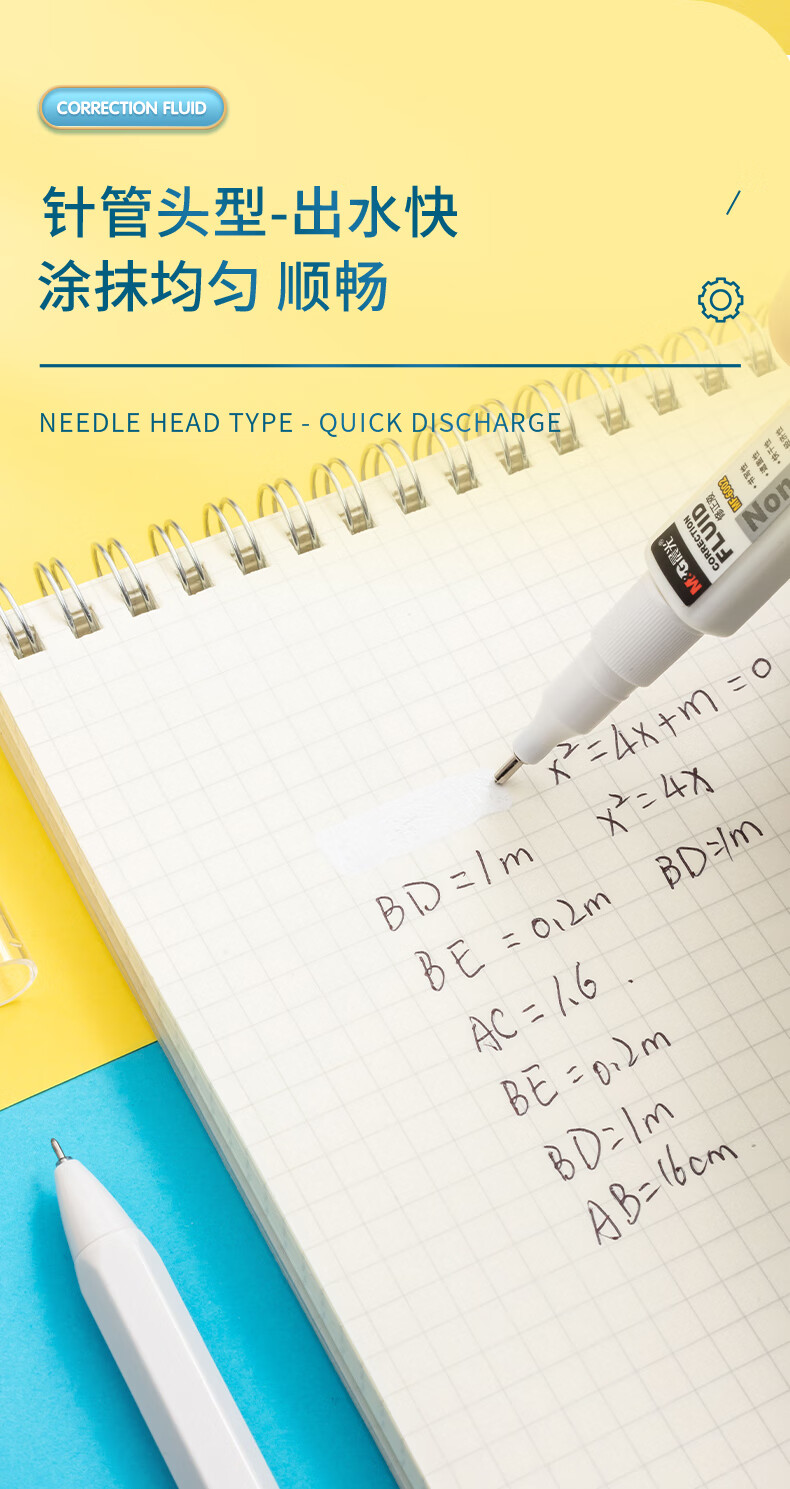 CORRECTION FLUID
针管头型-出水快
涂抹均匀 顺畅
NEEDLE HEAD TYPE - QUICK DISCHARGE
M&G晨光
CORRECTION
FLUID
修正液
MF-6002
Non
x²=4x+m=0
x²=4x
BD=1m
BD=1m
BE=0.2m
AC=1.6.
BE=0.2m
BD=1m
AB=16cm.